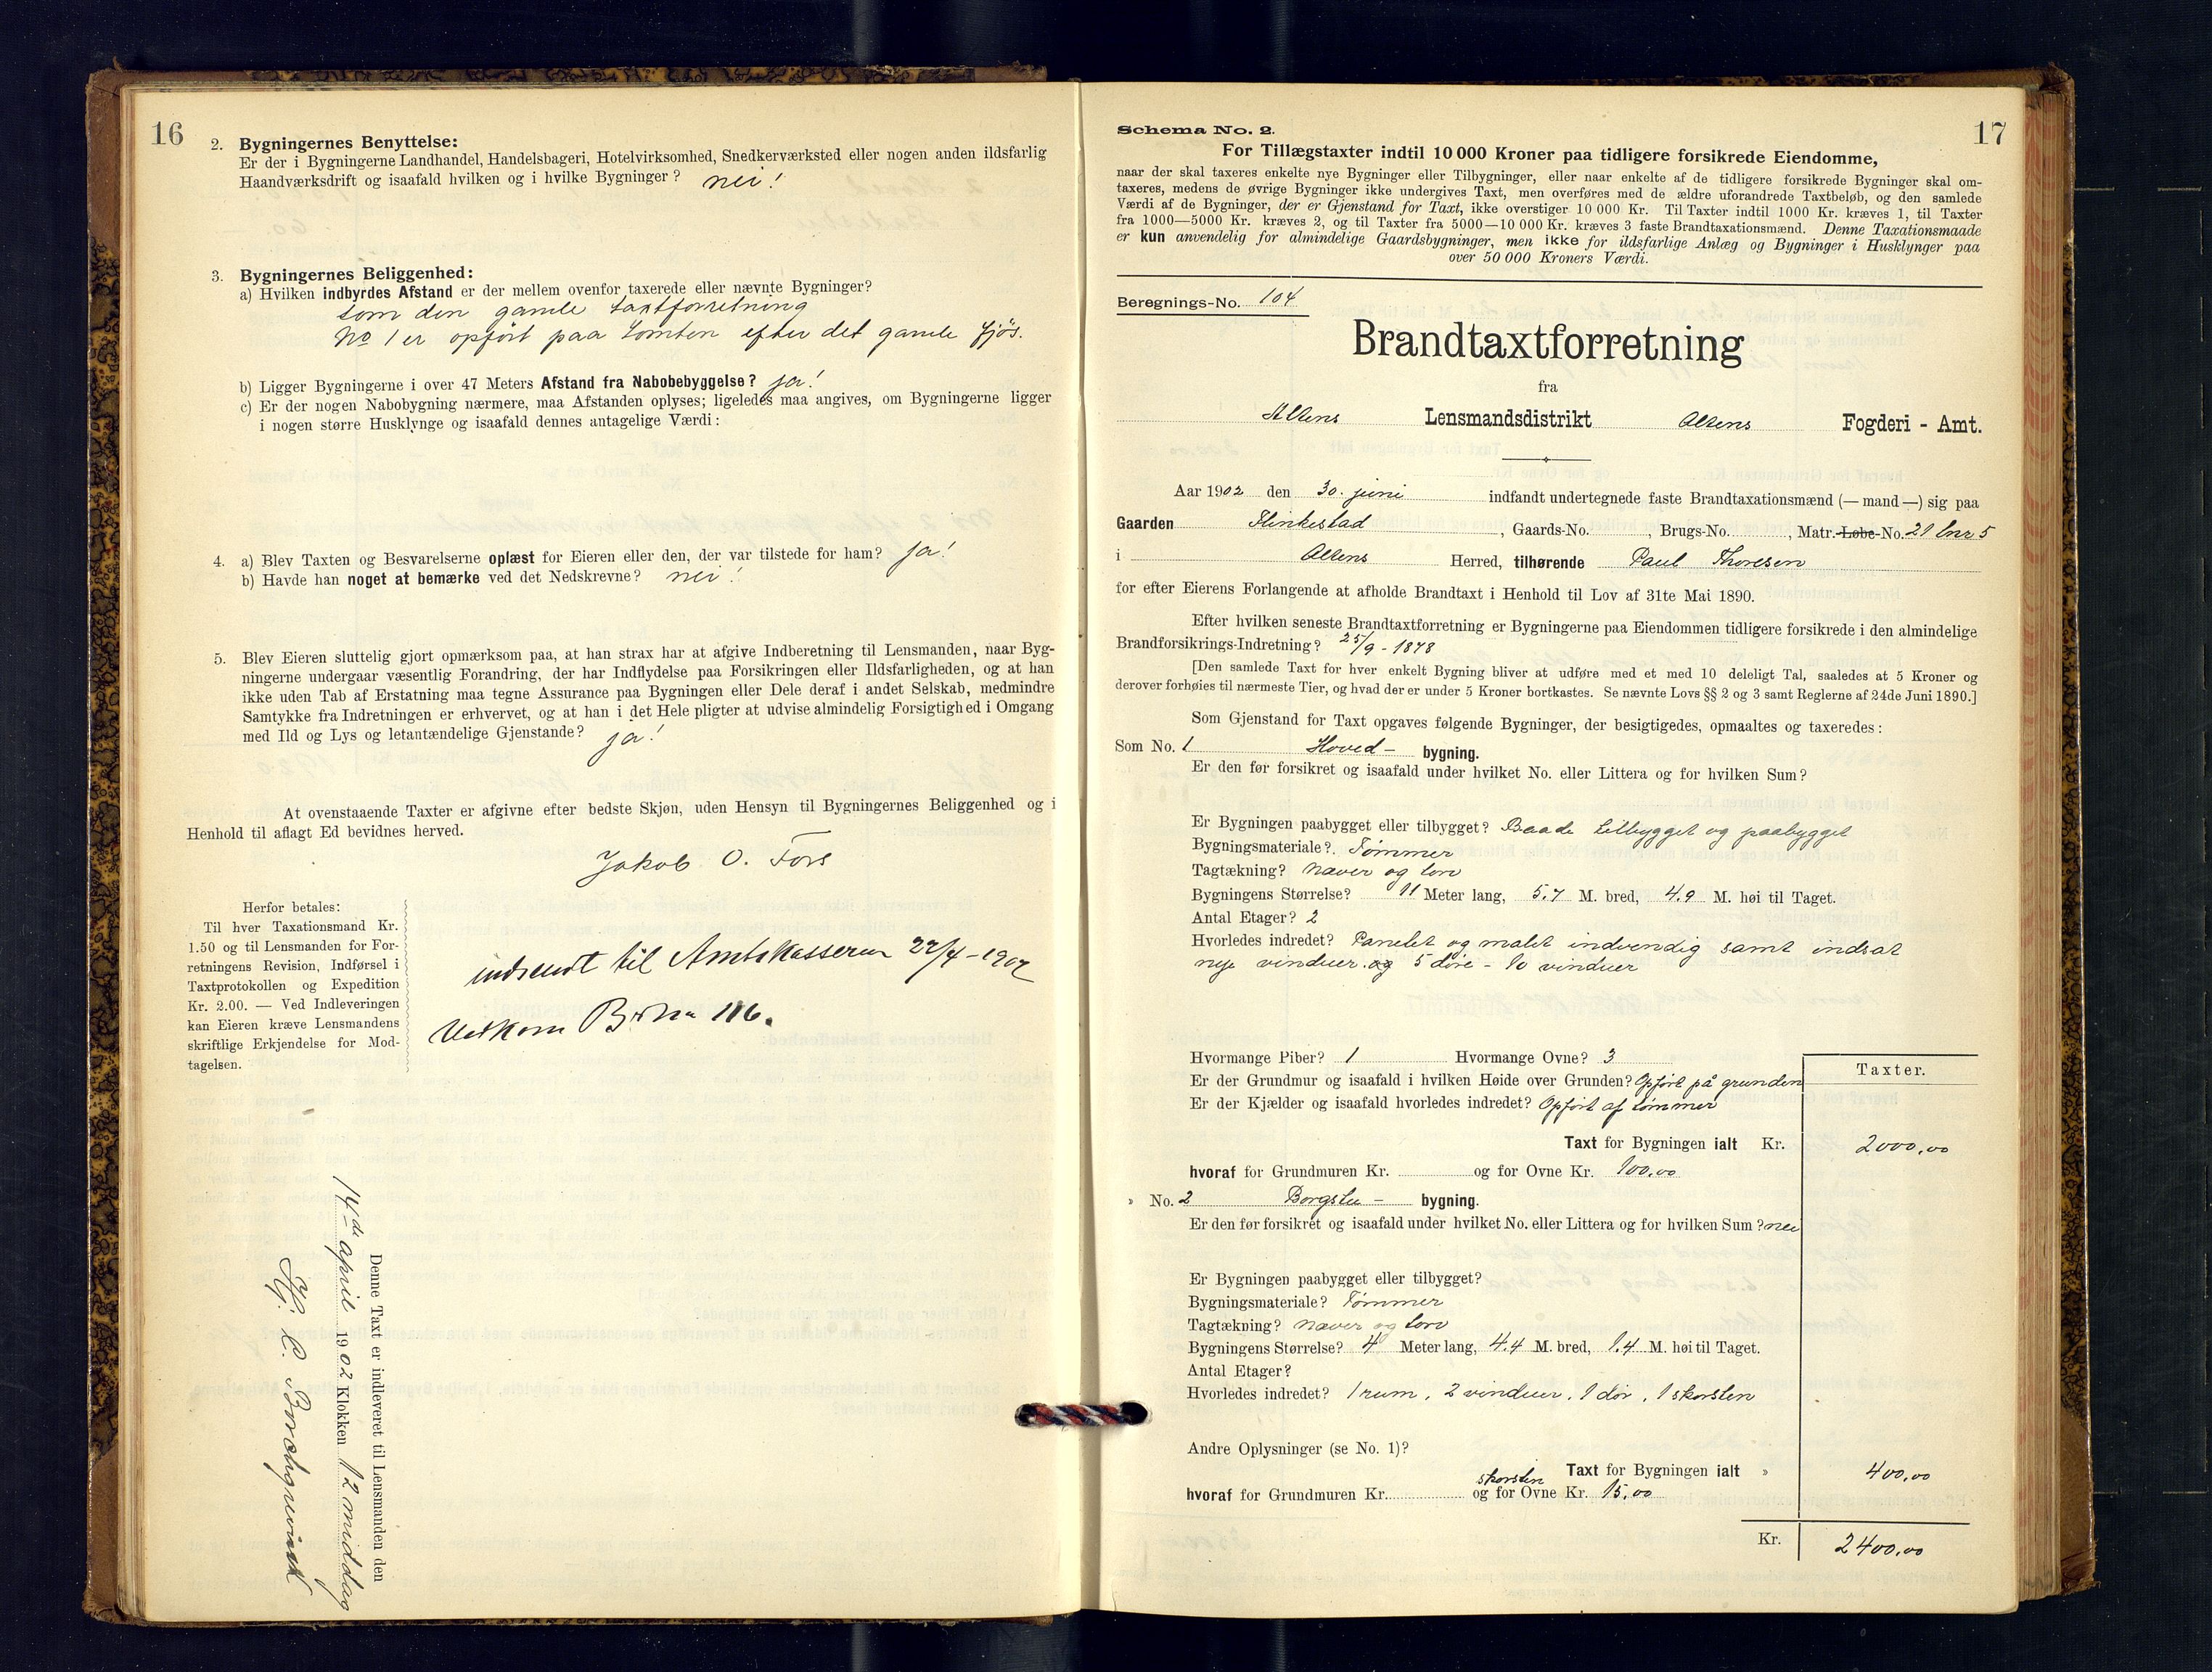 16
2. Bygningernes Benyttelse:
Er der i Bygningerne Landhandel, Handelsbageri, Hotelvirksomhed, Snedkerværksted eller nogen anden ildsfarlig
Haandværksdrift og isaafald hvilken og i hvilke Bygninger? nei!
3. Bygningernes Beliggenhed:
a) Hvilken indbyrdes Afstand er der mellem ovenfor taxerede eller nævnte Bygninger?
som den gamle taxtforretning
No 1 er opført paa tomten efter det gamle fjös.
b) Ligger Bygningerne i over 47 Meters Afstand fra Nabobebyggelse? ja!
c) Er der nogen Nabobygning nærmere, maa Afstanden oplyses; ligeledes maa angives, om Bygningerne ligger
i nogen større Husklynge og isaafald dennes antagelige Værdi:
4. a) Blev Taxten og Besvarelserne oplæst for Eieren eller den, der var tilstede for ham? ja!
b) Havde han noget at bemærke ved det Nedskrevne? nei!
5. Blev Eieren sluttelig gjort opmærksom paa, at han strax har at afgive Indberetning til Lensmanden, naar Byg-
ningerne undergaar væsentlig Forandring, der har Indflydelse paa Forsikringen eller Ildsfarligheden, og at han
ikke uden Tab af Erstatning maa tegne Assurance paa Bygningen eller Dele deraf i andet Selskab, medmindre
Samtykke fra Indretningen er erhvervet, og at han i det Hele pligter at udvise almindelig Forsigtighed i Omgang
med Ild og Lys og letantændelige Gjenstande? ja!
At ovenstaaende Taxter er afgivne efter bedste Skjøn, uden Hensyn til Bygningernes Beliggenhed og i
Henhold til aflagt Ed bevidnes herved.
Jakob O. Fors
Herfor betales:
Til hver Taxationsmand Kr.
1.50 og til Lensmanden for For-
retningens Revision, Indførsel i
Taxtprotokollen og Expedition
Kr. 2.00. — Ved Indleveringen
kan Eieren kræve Lensmandens
skriftlige Erkjendelse for Mod-
tagelsen.
indsendt til Amtskasseren 22/4 - 1902
Vedkom B.No 116.
Denne Taxt er indleveret til Lensmanden den
14de april 1902 Klokken 12 middag
Hj. C. Borchgrevink
17
Schema No. 2.
For Tillægstaxter indtil 10 000 Kroner paa tidligere forsikrede Eiendomme,
naar der skal taxeres enkelte nye Bygninger eller Tilbygninger, eller naar enkelte af de tidligere forsikrede Bygninger skal om-
taxeres, medens de øvrige Bygninger ikke undergives Taxt, men overføres med de ældre uforandrede Taxtbeløb, og den samlede
Værdi af de Bygninger, der er Gjenstand for Taxt, ikke overstiger 10 000 Kr. Til Taxter indtil 1000 Kr. kræves 1, til Taxter
fra 1000—5000 Kr. kræves 2, og til Taxter fra 5000—10 000 Kr. kræves 3 faste Brandtaxationsmænd. Denne Taxationsmaade
er kun anvendelig for almindelige Gaardsbygninger, men ikke for ildsfarlige Anlæg og Bygninger i Husklynger paa
over 50 000 Kroners Værdi.
Beregnings-No. 104
Brandtaxtforretning
fra
Altens Lensmandsdistrikt Altens Fogderi - Amt.
Aar 1902 den 30. juni indfandt undertegnede faste Brandtaxationsmænd (— mand —) sig paa
Gaarden Flinkestad, Gaards-No. , Brugs-No. , Matr. Løbe-No. 21 lnr 5
i Altens Herred, tilhørende Paul Thoresen
for efter Eierens Forlangende at afholde Brandtaxt i Henhold til Lov af 31te Mai 1890.
Efter hvilken seneste Brandtaxtforretning er Bygningerne paa Eiendommen tidligere forsikrede i den almindelige
Brandforsikrings-Indretning? 25/9 - 1878
[Den samlede Taxt for hver enkelt Bygning bliver at udføre med et med 10 deleligt Tal, saaledes at 5 Kroner og
derover forhøies til nærmeste Tier, og hvad der er under 5 Kroner bortkastes. Se nævnte Lovs §§ 2 og 3 samt Reglerne af 24de Juni 1890.]
Som Gjenstand for Taxt opgaves følgende Bygninger, der besigtigedes, opmaaltes og taxeredes:
Som No. 1 Hoved- bygning.
Er den før forsikret og isaafald under hvilket No. eller Littera og for hvilken Sum?
Er Bygningen paabygget eller tilbygget? Baade tilbygget og paabygget
Bygningsmateriale? Tømmer
Tagtækning? Næver og torv
Bygningens Størrelse? 11 Meter lang, 5.7 M. bred, 4.9 M. høi til Taget.
Antal Etager? 2
Hvorledes indredet? Panelet og malet indvendig samt indsat
nye vinduer. og 5 döre - 10 vinduer
Hvormange Piber? 1 Hvormange Ovne? 3
Taxter.
Er der Grundmur og isaafald i hvilken Høide over Grunden? Opført på grunden
Er der Kjælder og isaafald hvorledes indredet? Opført af tømmer
Taxt for Bygningen ialt Kr. 2000,00
hvoraf for Grundmuren Kr. og for Ovne Kr. 100.00
» No. 2 Borgstu- bygning.
Er den før forsikret og isaafald under hvilket No. eller Littera og for hvilken Sum? nei
Er Bygningen paabygget eller tilbygget?
Bygningsmateriale? Tømmer
Tagtækning? Næver og torv
Bygningens Størrelse? 4 Meter lang, 4.4 M. bred, 1.4 M. høi til Taget.
Antal Etager?
Hvorledes indredet? 1 rum, 2 vinduer, 1 dör, 1 skorsten
Andre Oplysninger (se No. 1)?
Taxt for Bygningen ialt » 400,00
skorsten
hvoraf for Grundmuren Kr. og for Ovne Kr. 15.00
Kr. 2400,00